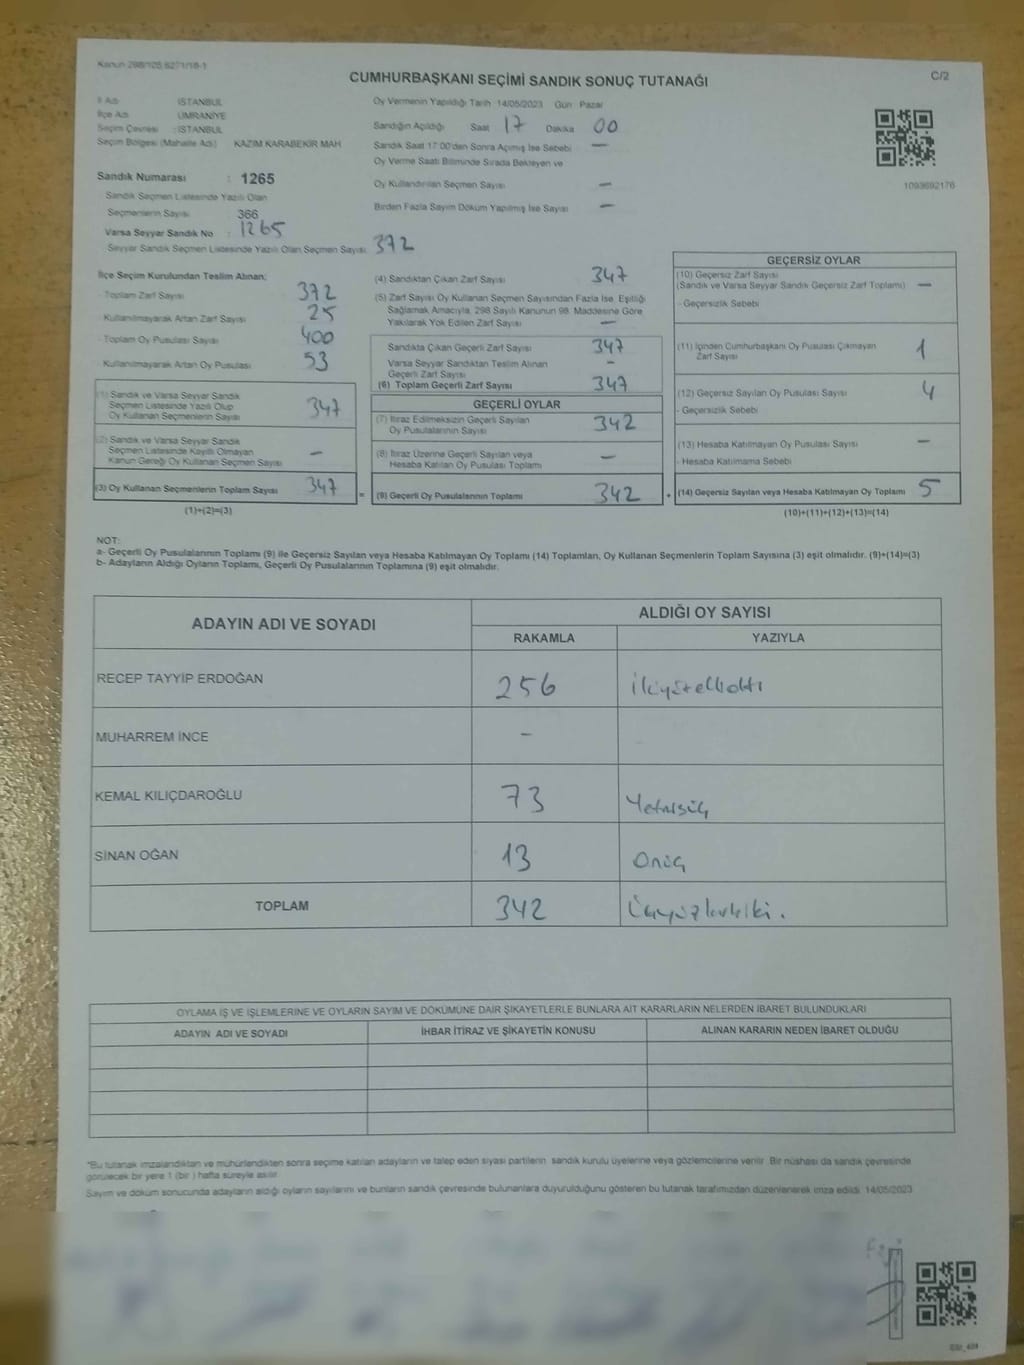 Kanun 298/105,6271/16-1
CUMHURBAŞKANI SEÇİMİ SANDIK SONUÇ TUTANAĞI
C/2
İl Adı : İSTANBUL
İlçe Adı : ÜMRANİYE
Seçim Çevresi : İSTANBUL
Seçim Bölgesi (Mahalle Adı) KAZIM KARABEKİR MAH
Sandık Numarası : 1265
Sandık Seçmen Listesinde Yazılı Olan
Seçmenlerin Sayısı 366
Varsa Seyyar Sandık No : 1265
Seyyar Sandık Seçmen Listesinde Yazılı Olan Seçmen Sayısı 372
Oy Vermenin Yapıldığı Tarih 14/05/2023 Gün Pazar
Sandığın Açıldığı Saat 17 Dakika 00
Sandık Saat 17:00'den Sonra Açılmış İse Sebebi —
Oy Verme Saati Bitiminde Sırada Bekleyen ve
Oy Kullandırılan Seçmen Sayısı —
Birden Fazla Sayım Döküm Yapılmış İse Sayısı —
1093692176
İlçe Seçim Kurulundan Teslim Alınan;
- Toplam Zarf Sayısı 372
- Kullanılmayarak Artan Zarf Sayısı 25
- Toplam Oy Pusulası Sayısı 400
- Kullanılmayarak Artan Oy Pusulası 53
(1) Sandık ve Varsa Seyyar Sandık
Seçmen Listesinde Yazılı Olup
Oy Kullanan Seçmenlerin Sayısı 347
(2) Sandık ve Varsa Seyyar Sandık
Seçmen Listesinde Kayıtlı Olmayan
Kanun Gereği Oy Kullanan Seçmen Sayısı —
(3) Oy Kullanan Seçmenlerin Toplam Sayısı 347
(1)+(2)=(3)
=
(4) Sandıktan Çıkan Zarf Sayısı 347
(5) Zarf Sayısı Oy Kullanan Seçmen Sayısından Fazla İse, Eşitliği
Sağlamak Amacıyla, 298 Sayılı Kanunun 98. Maddesine Göre
Yakılarak Yok Edilen Zarf Sayısı —
Sandıkta Çıkan Geçerli Zarf Sayısı 347
Varsa Seyyar Sandıktan Teslim Alınan
Geçerli Zarf Sayısı -
(6) Toplam Geçerli Zarf Sayısı 347
GEÇERLİ OYLAR
(7) İtiraz Edilmeksizin Geçerli Sayılan
Oy Pusulalarının Sayısı 342
(8) İtiraz Üzerine Geçerli Sayılan veya
Hesaba Katılan Oy Pusulası Toplamı —
(9) Geçerli Oy Pusulalarının Toplamı 342
+
GEÇERSİZ OYLAR
(10) Geçersiz Zarf Sayısı
(Sandık ve Varsa Seyyar Sandık Geçersiz Zarf Toplamı) —
- Geçersizlik Sebebi
(11) İçinden Cumhurbaşkanı Oy Pusulası Çıkmayan
Zarf Sayısı 1
(12) Geçersiz Sayılan Oy Pusulası Sayısı 4
- Geçersizlik Sebebi
(13) Hesaba Katılmayan Oy Pusulası Sayısı —
- Hesaba Katılmama Sebebi
(14) Geçersiz Sayılan veya Hesaba Katılmayan Oy Toplamı 5
(10)+(11)+(12)+(13)=(14)
NOT:
a- Geçerli Oy Pusulalarının Toplamı (9) ile Geçersiz Sayılan veya Hesaba Katılmayan Oy Toplamı (14) Toplamları, Oy Kullanan Seçmenlerin Toplam Sayısına (3) eşit olmalıdır. (9)+(14)=(3)
b- Adayların Aldığı Oyların Toplamı, Geçerli Oy Pusulalarının Toplamına (9) eşit olmalıdır.
ADAYIN ADI VE SOYADI
ALDIĞI OY SAYISI
RAKAMLA YAZIYLA
RECEP TAYYİP ERDOĞAN 256 İkiyüzellialtı
MUHARREM İNCE -
KEMAL KILIÇDAROĞLU 73 Yetmişüç
SİNAN OĞAN 13 Onüç
TOPLAM 342 Üçyüzkırkiki.
OYLAMA İŞ VE İŞLEMLERİNE VE OYLARIN SAYIM VE DÖKÜMÜNE DAİR ŞİKAYETLERLE BUNLARA AİT KARARLARIN NELERDEN İBARET BULUNDUKLARI
ADAYIN ADI VE SOYADI İHBAR İTİRAZ VE ŞİKAYETİN KONUSU ALINAN KARARIN NEDEN İBARET OLDUĞU
*Bu tutanak imzalandıktan ve mühürlendikten sonra seçime katılan adayların ve talep eden siyasi partilerin sandık kurulu üyelerine veya gözlemcilerine verilir. Bir nüshası da sandık çevresinde
görülecek bir yere 1 (bir ) hafta süreyle asılır.
Sayım ve döküm sonucunda adayların aldığı oyların sayılarını ve bunların sandık çevresinde bulunanlara duyurulduğunu gösteren bu tutanak tarafımızdan düzenlenerek imza edildi. 14/05/2023